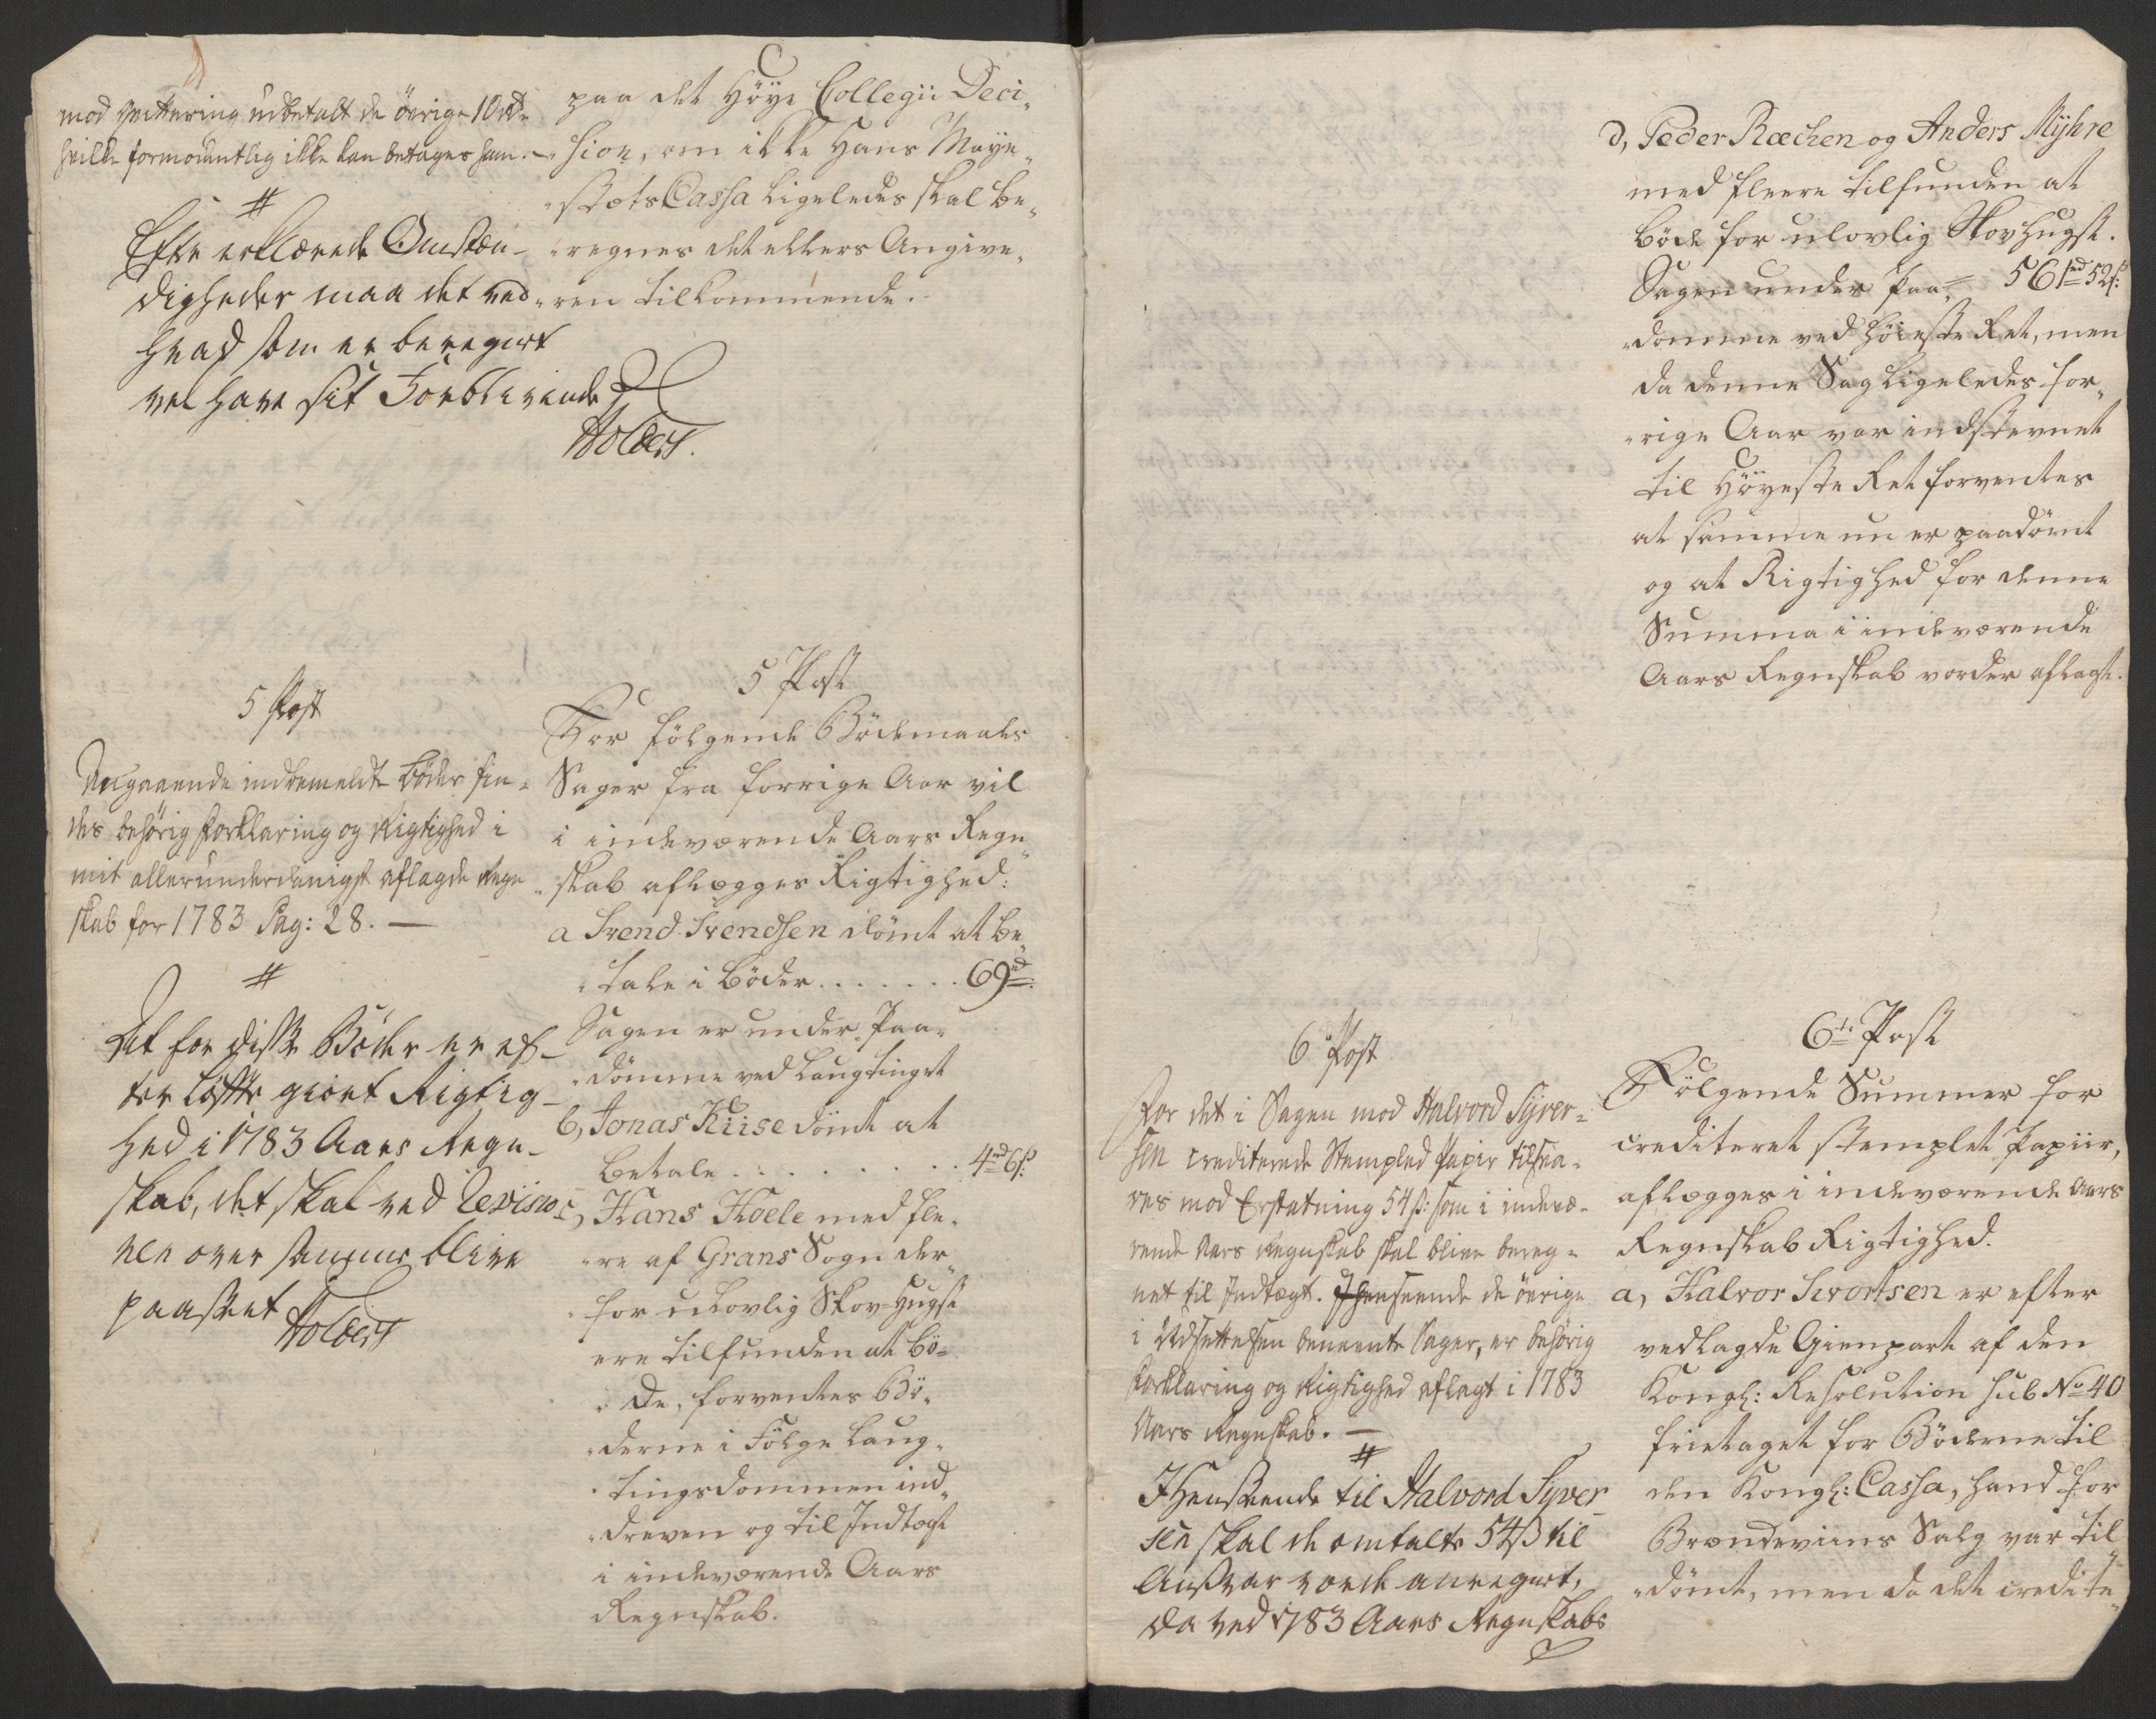 mod qvittering udbetalt de övrige 10 rd
hvilke formodentlig ikke kan betages ham. —
#
Efter erklærede Omstæn-
digheder maa det ved
hvad som er beregnet
vel have sit Forblivende
Holbers.
5 Post
Angaaende indbemeldte bøder fin-
des behörig forklaring og Rigtighed i
mit allerunderdanigst aflagde Regn
skab for 1783 Pag: 28. —
#
At for disse Bøder er ef-
ter løfte giort Rigtig-
hed i 1783 Aars Regn-
skab, det skal ved Revisio
nen over samme blive
paaseet
Holbers
paa det Höye Collegii Deci„
„sion, om ikke Hans Maye„
„stæts Cassa ligeledes skal be„
„regnes det ellers Angive„
„ren tilkommende.
5 Post
For fölgende Bödemaals
Sager fra forrige Aar vil
i indeværende Aars Regn„
„skab aflægges Rigtighed:
a Svend Svendsen dömt at be„
„tale i Böder. . . . . . . 69 rd:
Sagen er under Paa„
„dömme ved Laugtinget
b, Jonas Kiise dömt at
betale . . . . . . . . . 4 rd 6 ß:
c, Hans Hoele med fle„
„re af Grans Sogn der„
„for ulovlig Skov-Hugst
ere tilfunden at bö„
„de, forventes Bö„
„derne i Fölge Laug„
„tingsdommen ind„
„dreven og til Indtægt
i indeværende Aars
Regnskab.
6 Post
For det i Sagen mod Halvord Syver-
sen crediterede Stempled Papir tilsva-
res mod Erstatning 54 ß: som i indevæ-
rende Aars Regnskab skal blive bereg-
net til Indtægt. Ihenseende de övrige
i Udsettelsen benevnte Sager, er behörig
forklaring og Rigtighed aflagt i 1783
Aars Regnskab. —
#
I Henseende til Halvord Syver
sen skal de omtalte 54 ß til
Ansvar vorde anregnet,
da ved 1783 Aars Regnskabs
d, Peder Ræchen og Anders Myhre
med fleere tilfunden at
böde for ulovlig Skovhugst.
Sagen under Paa„ 561 rd 52 ß:
„domme ved Höieste Ret, men
da denne Sag ligeledes for„
„rige Aar var indstevnet
til Höyeste Ret forventes
at samme nu er paadömt
og at Rigtighed for denne
Summa i indeværende
Aars Regnskab vorder aflagt.
6te Post
Fölgende Summer for
crediteret stemplet Papiir,
aflægges i indeværende Aars
Regnskab Rigtighed.
a, Halvor Sivortsen er efter
vedlagde Gienpart af den
Kongl: Resolution sub No 40
frietaget for Böderne til
den Kongl: Cassa, hand for
Brændeviins Salg var til„
„dömt, men da det credite„